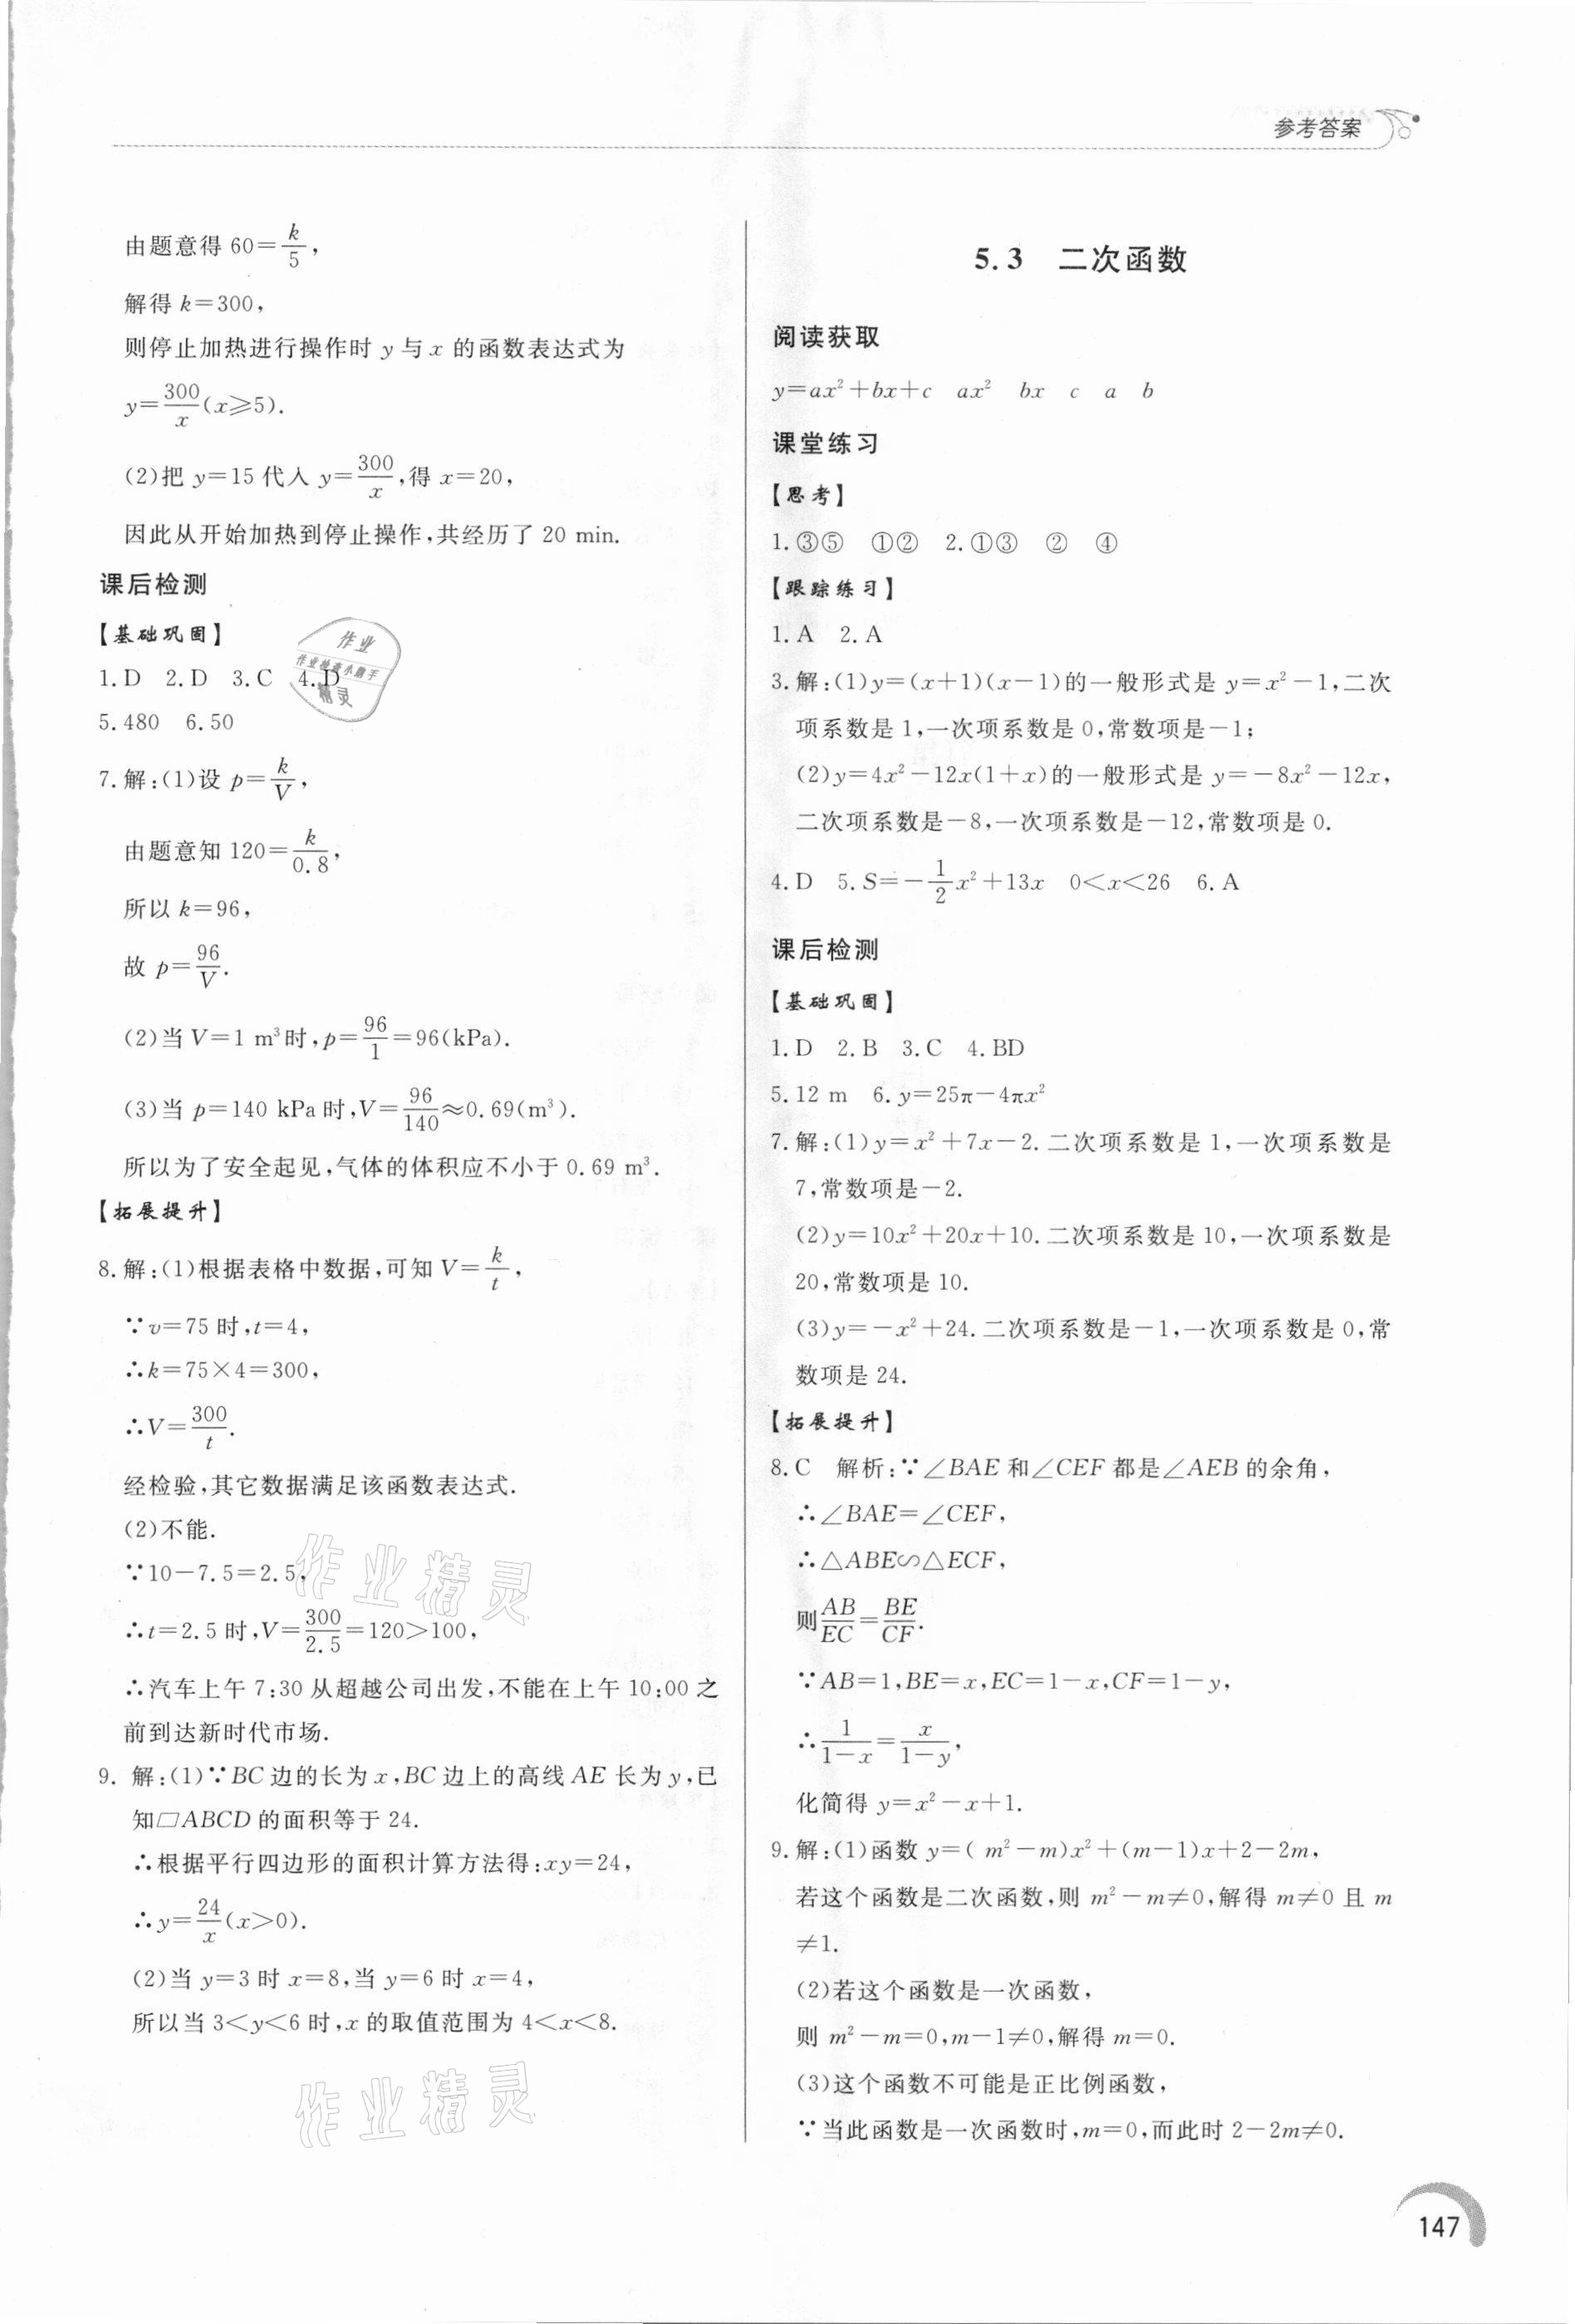 参考答案
由题意得 60=k/5,
解得 k=300,
则停止加热进行操作时 y 与 x 的函数表达式为
y=300/x(x⩾5).
(2)把 y=15 代入 y=300/x,得 x=20,
因此从开始加热到停止操作,共经历了 20 min.
课后检测
【基础巩固】
1.D 2.D 3.C 4.D
5.480 6.50
7.解:(1)设 p=k/V,
由题意知 120=k/0.8,
所以 k=96,
故 p=96/V.
(2)当 V=1 m³时,p=96/1=96(kPa).
(3)当 p=140 kPa 时,V=96/140≈0.69(m³).
所以为了安全起见,气体的体积应不小于 0.69 m³.
【拓展提升】
8.解:(1)根据表格中数据,可知 V=k/t,
∵v=75 时,t=4,
∴k=75×4=300,
∴V=300/t.
经检验,其它数据满足该函数表达式.
(2)不能.
∵10-7.5=2.5,
∴t=2.5 时,V=300/2.5=120>100,
∴汽车上午 7:30 从超越公司出发,不能在上午 10:00 之
前到达新时代市场.
9. 解:(1)∵BC 边的长为 x,BC 边上的高线 AE 长为 y,已
知▱ABCD 的面积等于 24.
∴根据平行四边形的面积计算方法得:xy=24,
∴y=24/x(x>0).
(2)当 y=3 时 x=8,当 y=6 时 x=4,
所以当 3<y<6 时,x 的取值范围为 4<x<8.
5.3 二次函数
阅读获取
y=ax²+bx+c ax² bx c a b
课堂练习
【思考】
1.③⑤ ①② 2.①③ ② ④
【跟踪练习】
1.A 2.A
3.解:(1)y=(x+1)(x-1)的一般形式是 y=x²-1,二次
项系数是 1,一次项系数是 0,常数项是-1;
(2)y=4x²-12x(1+x)的一般形式是 y=-8x²-12x,
二次项系数是-8,一次项系数是-12,常数项是 0.
4.D 5.S=-1/2x²+13x 0<x<26 6.A
课后检测
【基础巩固】
1.D 2.B 3.C 4.BD
5.12 m 6.y=25π-4πx²
7.解:(1)y=x²+7x-2.二次项系数是 1,一次项系数是
7,常数项是-2.
(2)y=10x²+20x+10.二次项系数是 10,一次项系数是
20,常数项是 10.
(3)y=-x²+24.二次项系数是-1,一次项系数是 0,常
数项是 24.
【拓展提升】
8.C 解析:∵∠BAE 和∠CEF 都是∠AEB 的余角,
∴∠BAE=∠CEF,
∴△ABE∽△ECF,
则AB/EC=BE/CF.
∵AB=1,BE=x,EC=1-x,CF=1-y,
∴1/1-x=x/1-y,
化简得 y=x²-x+1.
9.解:(1)函数 y=( m²-m)x²+(m-1)x+2-2m,
若这个函数是二次函数,则 m²-m≠0,解得 m≠0 且 m
≠1.
(2)若这个函数是一次函数,
则 m²-m=0,m-1≠0,解得 m=0.
(3)这个函数不可能是正比例函数,
∵当此函数是一次函数时,m=0,而此时 2-2m≠0.
147
作业
作业检查小助手
精灵
作业精灵
作业精灵